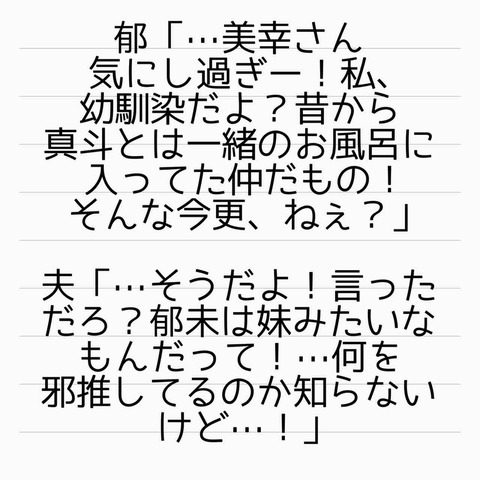 郁「…美幸さん
気にし過ぎー！私、
幼馴染だよ？昔から
真斗とは一緒のお風呂に
入ってた仲だもの！
そんな今更、ねぇ？」
夫「…そうだよ！言った
だろ？郁未は妹みたいな
もんだって！…何を
邪推してるのか知らない
けど…！」